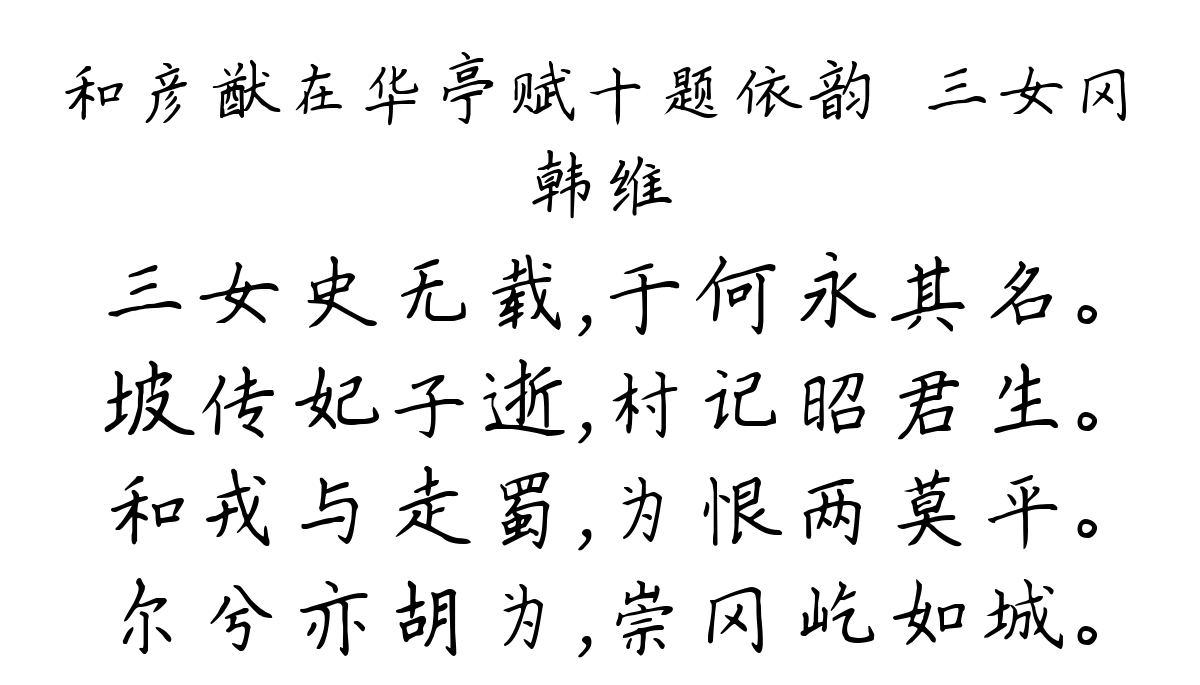 和彦猷在华亭赋十题依韵 三女冈
韩维
三女史无载,于何永其名。
坡传妃子逝,村记昭君生。
和戎与走蜀,为恨两莫平。
尔兮亦胡为,崇冈屹如城。